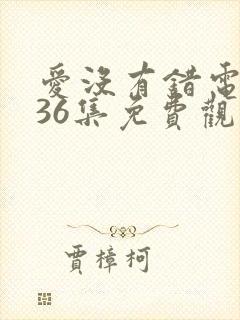 愛沒有錯電
36集免費觀
賈樟柯